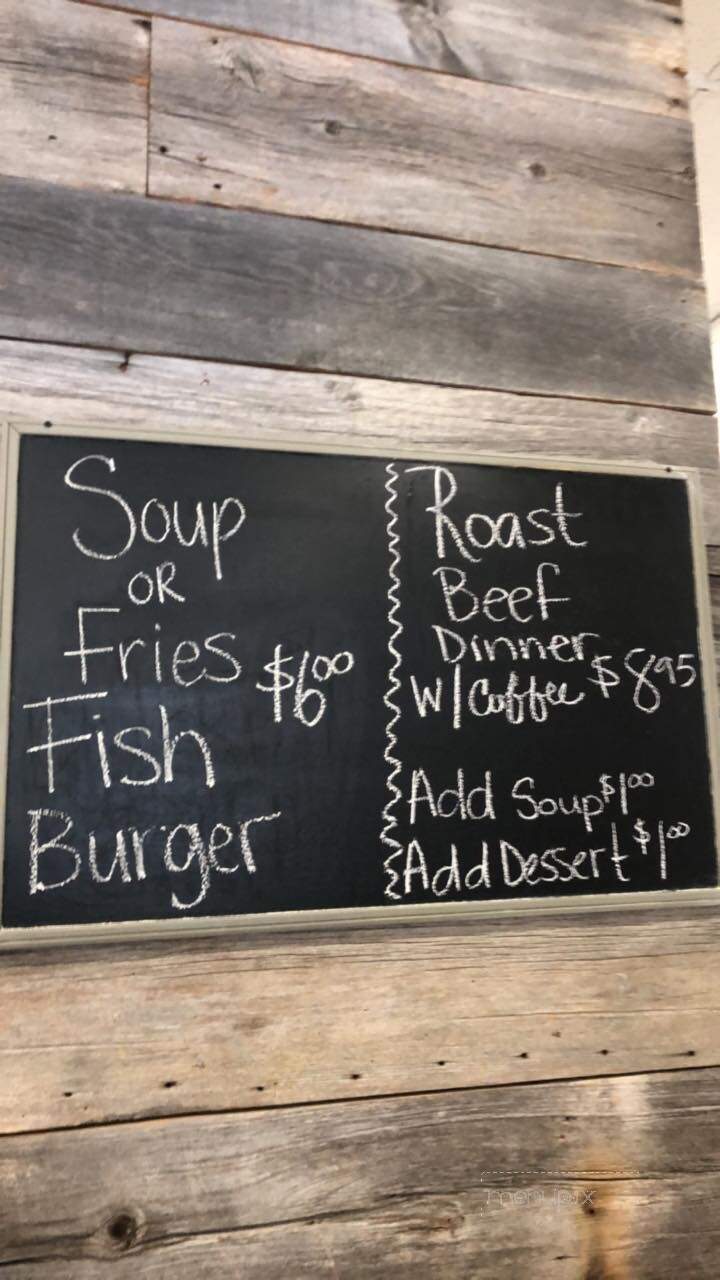 Soup
OR
Fries $6.00
Fish
Burger
Roast
Beef
Dinner
W/Coffee $8.95
Add Soup $1.00
Add Dessert $1.00
menupix